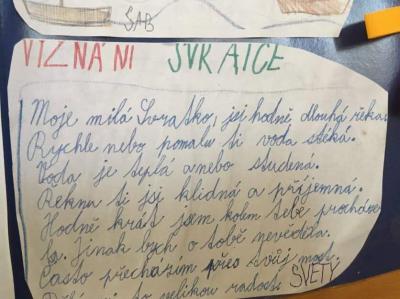 SAB
VIZNÁNI SVRATCE
Moje milá Svratko, jsi hodně dlouhá řeka
Rychle nebo pomalu ti voda stéká.
Voda je teplá anebo studená.
Řeknu ti jsi klidná a příjemná.
Hodně krát jsem kolem tebe procháze
la. Jinak bych o tobě nevěděla.
Často přecházím přes svůj most.
SVETY
velikou radost